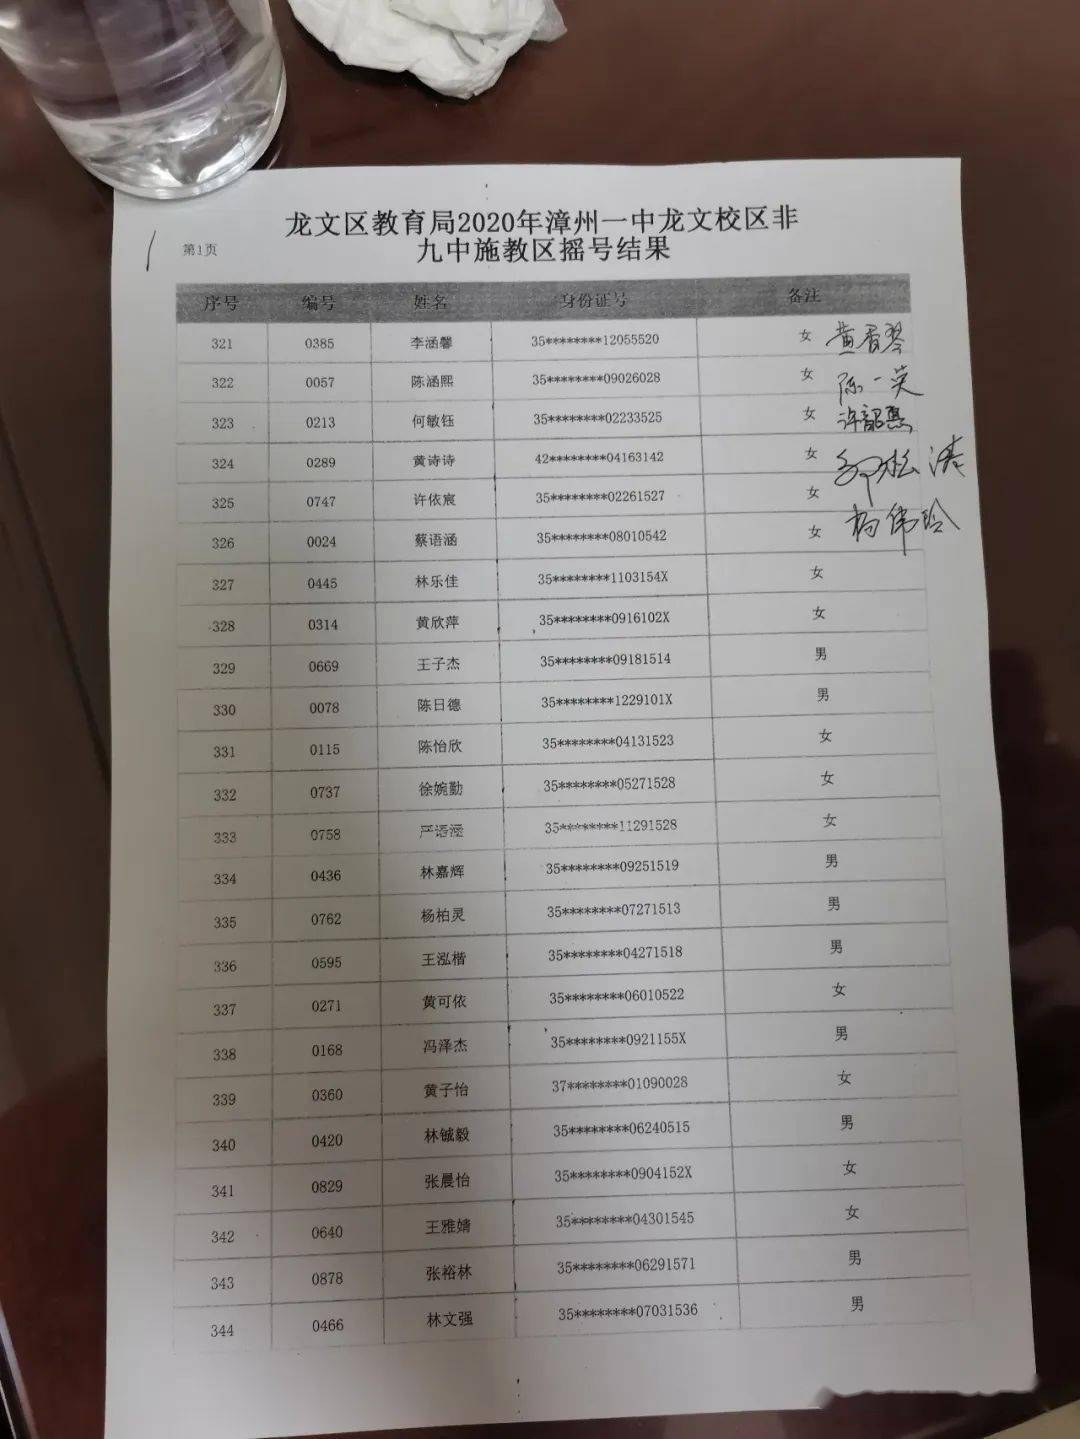 龙文区教育局2020年漳州一中龙文校区非
第1页
九中施教区摇号结果
序号 编号 姓名 身份证号 备注
321 0385 李涵馨 35********12055520 女 黄香琴
322 0057 陈涵熙 35********09026028 女 陈一英
323 0213 何敏钰 35********02233525 女 许韶惠
324 0289 黄诗诗 42********04163142 女
325 0747 许依宸 35********02261527 女
326 0024 蔡语涵 35********08010542 女 杨伟玲
327 0445 林乐佳 35********1103154X 女
328 0314 黄欣萍 35********0916102X 女
329 0669 王子杰 35********09181514 男
330 0078 陈日德 35********1229101X 男
331 0115 陈怡欣 35********04131523 女
332 0737 徐婉勤 35********05271528 女
333 0758 严语 35********11291528 女
334 0436 林嘉辉 35********09251519 男
335 0762 杨柏灵 35********07271513 男
336 0595 王泓楷 35********04271518 男
337 0271 黄可依 35********06010522 女
338 0168 冯泽杰 35********0921155X 男
339 0360 黄子怡 37********01090028 女
340 0420 林铖毅 35********06240515 男
341 0829 张晨怡 35********0904152X 女
342 0640 王雅婧 35********04301545 女
343 0878 张裕林 35********06291571 男
344 0466 林文强 35********07031536 男